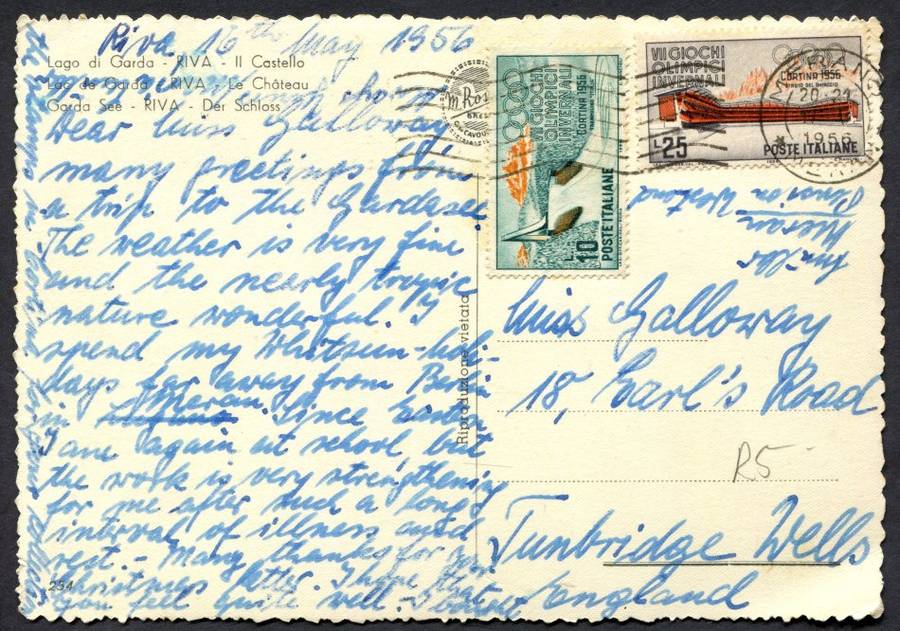 Riva 16th May 1956
Lago di Garda - RIVA - Il Castello
Lac de Garda - RIVA - Le Château
Garda See - RIVA - Der Schloss
Dear Miss Galloway
many greetings from
a trip to the Gardasee
The weather is very fine
and the nearly tropic
nature wonderful. I
spend my Whitsun-holi-
days far away from Berlin
in Meran. Since Easter
I am again at school, but
the work is very strengthening
for me after such a long
interval of illness and
rest. - Many thanks for your
Christmas letter. I hope that
you feel quite well.
254
Riproduzione vietata
VII GIOCHI
OLIMPICI
INVERNALI
CORTINA 1956
L. 10 POSTE ITALIANE
VII GIOCHI
OLIMPICI
INVERNALI
CORTINA 1956
L. 25 POSTE ITALIANE
1956
Meran
Pension
Miss Galloway
18, Earl's Road
R5
Tunbridge Wells
England